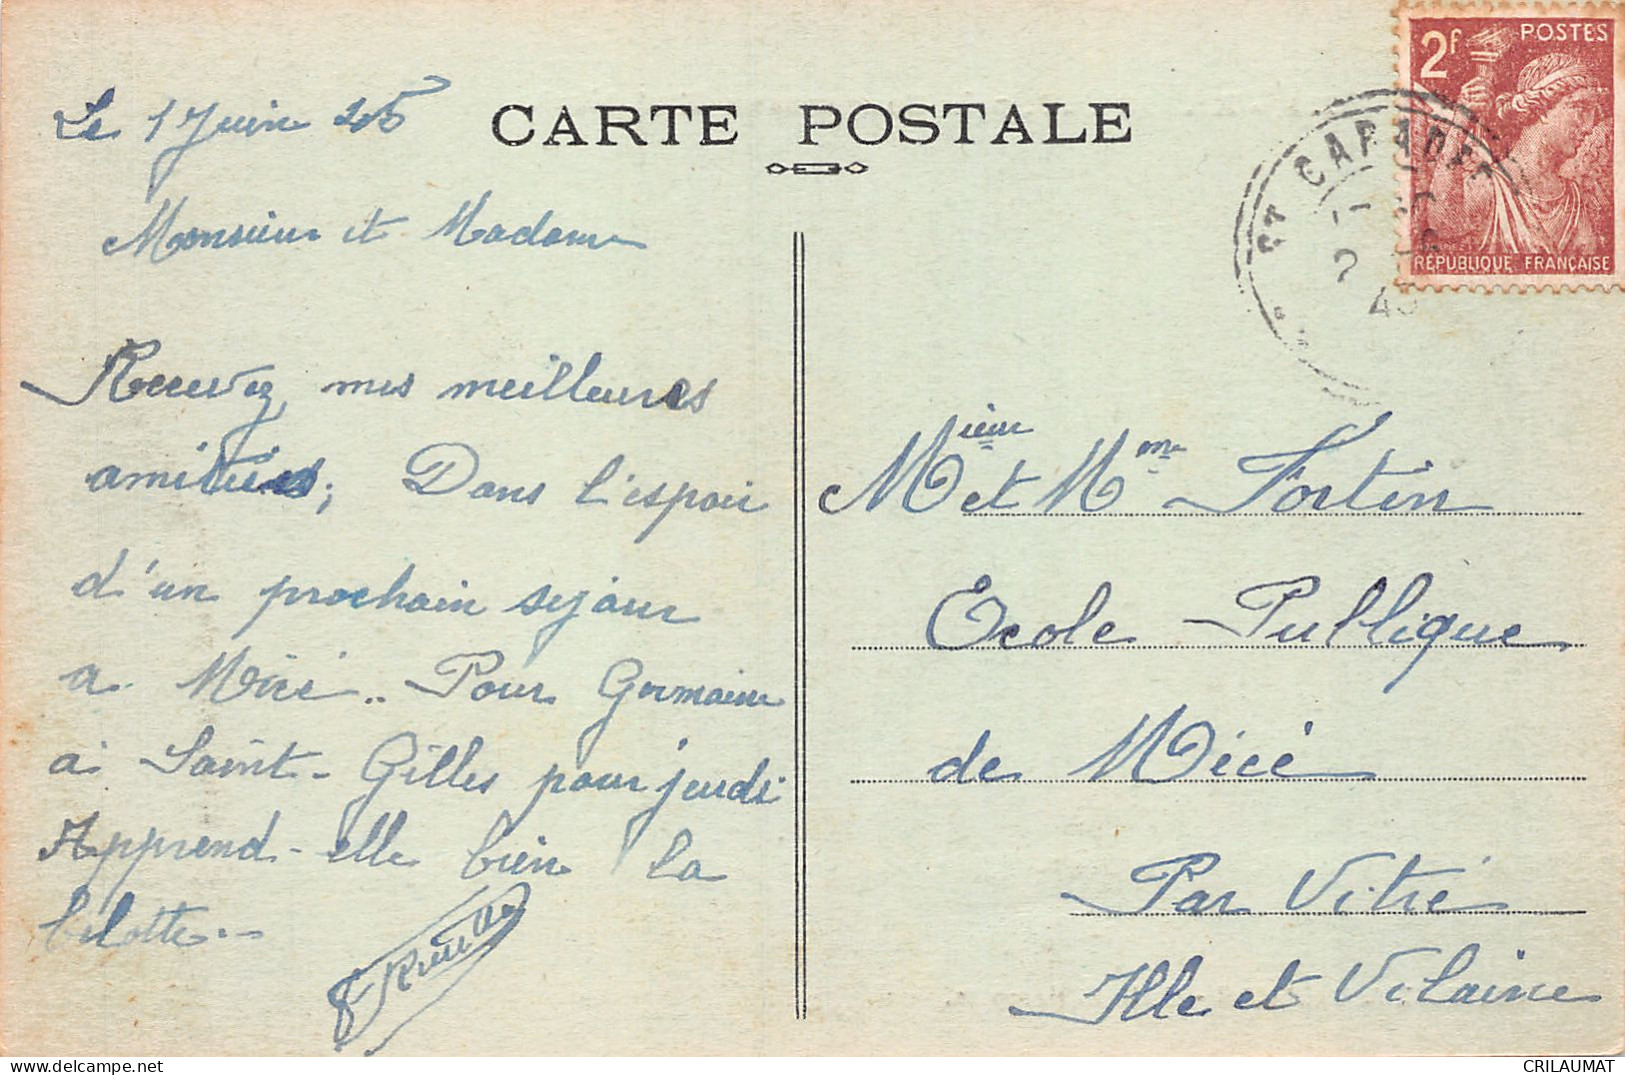 Le 1 Juin 45
CARTE POSTALE
Monsieur et Madame
Recevez mes meilleures
amitiés; Dans l'espoir
d'un prochain séjour
a Mécé.. Pour Germaine
a Saint-Gilles pour jeudi
Apprend-elle bien la
belotte..
POSTES
2f
RÉPUBLIQUE FRANÇAISE
ST CARADEC
45
Mieur et Mme Fortin
Ecole Publique
de Mécé
Par Vitré
Ille et Vilaine
CRILAUMAT